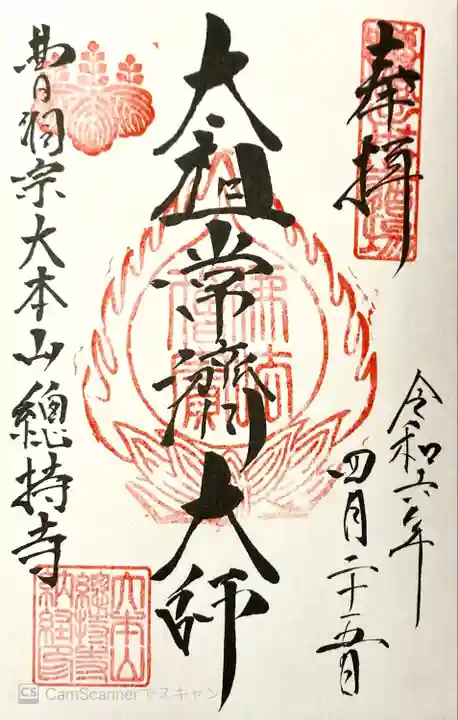 奉拝
令和六年
四月二十五日
太祖常濟大師
曹洞宗大本山總持寺
大本山
總持寺
納経印
CS CamScannerでスキャン